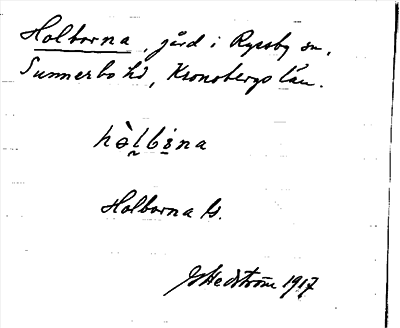 Holborna, gård i Ryssby sn,
Sunnerbo hd, Kronobergs län.
hə̀l̬bi̤na
Holborna ls.
G Hedström 1917